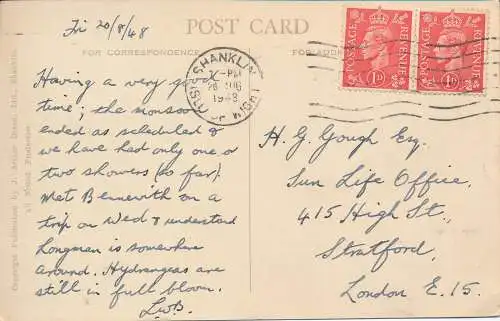 Fri 20/8/48
POST CARD
FOR CORRESPONDENCE
FOR ADDRESS
Having a very good
time; the monsoon
ended as scheduled &
we have had only one or
two showers (so far)
Met Bennewith on a
trip on Wed & understand
Longman is somewhere
around. Hydrangeas are
still in full bloom.
L.W.B.
SHANKLIN
I. OF WIGHT
-PM
20 AUG
1948
POSTAGE
REVENUE
1D
POSTAGE
REVENUE
1D
H. G. Gough Esq.
Sun Life Office,
415 High St.,
Stratford,
London E.15.
Copyright Published by J. Arthur Dixon, Ltd.